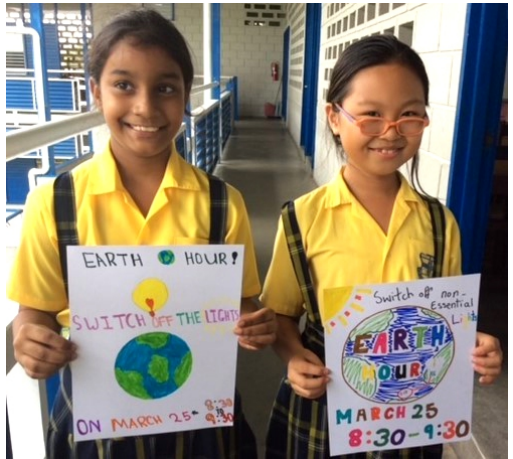 EARTH HOUR!
SWITCH OFF THE LIGHTS
ON MARCH 25th 8:30
to
9:30
Switch off non-
Essential
Lights
EARTH
HOUR
MARCH 25
8:30-9:30